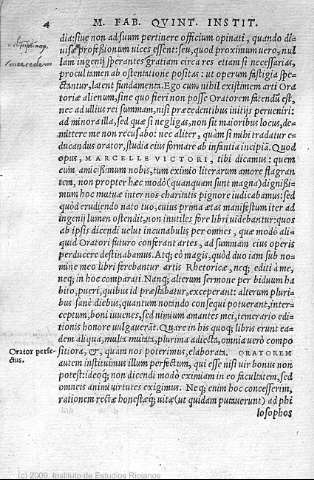 4 M. FAB. QVINT. INSTIT.
dia: siue non ad suum pertinere officium opinati, quando diui
sæ professionum vices essent: seu, quod proximum vero, nul
lam ingenij sperantes gratiam circa res etiam si necessarias,
procul tamen ab ostentatione positas: ut operum fastigia spe
ctantur, latent fundamenta. Ego cum nihil existimem arti Ora
toriæ alienum, sine quo fieri non posse Oratorem fatendũ est,
nec ad ullius rei summam, nisi præcedentibus initijs perueniri:
ad minora illa, sed quæ si negligas, non sit maioribus locus, de=
mittere me non recusabo: nec aliter, quàm si mihi tradatur e
ducandus orator, studia eius formare ab infantia incipiã. Quod
opus, MARCELLE VICTORI, tibi dicamus: quem
cum amicissimum nobis, tum eximio literarum amore flagran
tem, non propter hæc modò (quanquam sunt magna) dignissi=
mum hoc mutuæ inter nos charitatis pignore iudicabamus: sed
quòd erudiendo nato tuo, cuius prima ætas manifestum iter ad
ingenij lumen ostendit, non inutiles fore libri uidebantur: quos
ab ipsis dicendi uelut incunabulis per omnes, quæ modò ali
quid Oratori futuro conferant artes, ad summam eius operis
perducere destinabamus. Atq; eò magis, quòd duo iam sub no=
mine meo libri ferebantur artis Rhetoricæ, neq; editi à me,
neq; in hoc comparati. Nanq; alterum sermone per biduum ha
bito, pueri, quibus id præstabatur, exceperant: alterum pluri=
bus sanè diebus, quantum notando consequi potuerant, inter=
ceptum, boni iuuenes, sed nimium amantes mei, temerario edi=
tionis honore uulgauerãt. Quare in his quoq; libris erunt ea=
dem aliqua, multa mutata, plurima adiecta, omnia uerò compo
sitiora, &, quam nos poterimus, elaborata. ORATOREM
Orator perfe=
ctus.
autem instituimus illum perfectum, qui esse nisi uir bonus non
potest: ideoq; non dicendi modò eximiam in eo facultatem, sed
omneis animi uirtutes exigimus. Neq; enim hoc concesserim,
rationem rectæ honestæq; uitæ (ut quidam putauerunt) ad phi
losophos
(c) 2009. Instituto de Estudios Riojanos